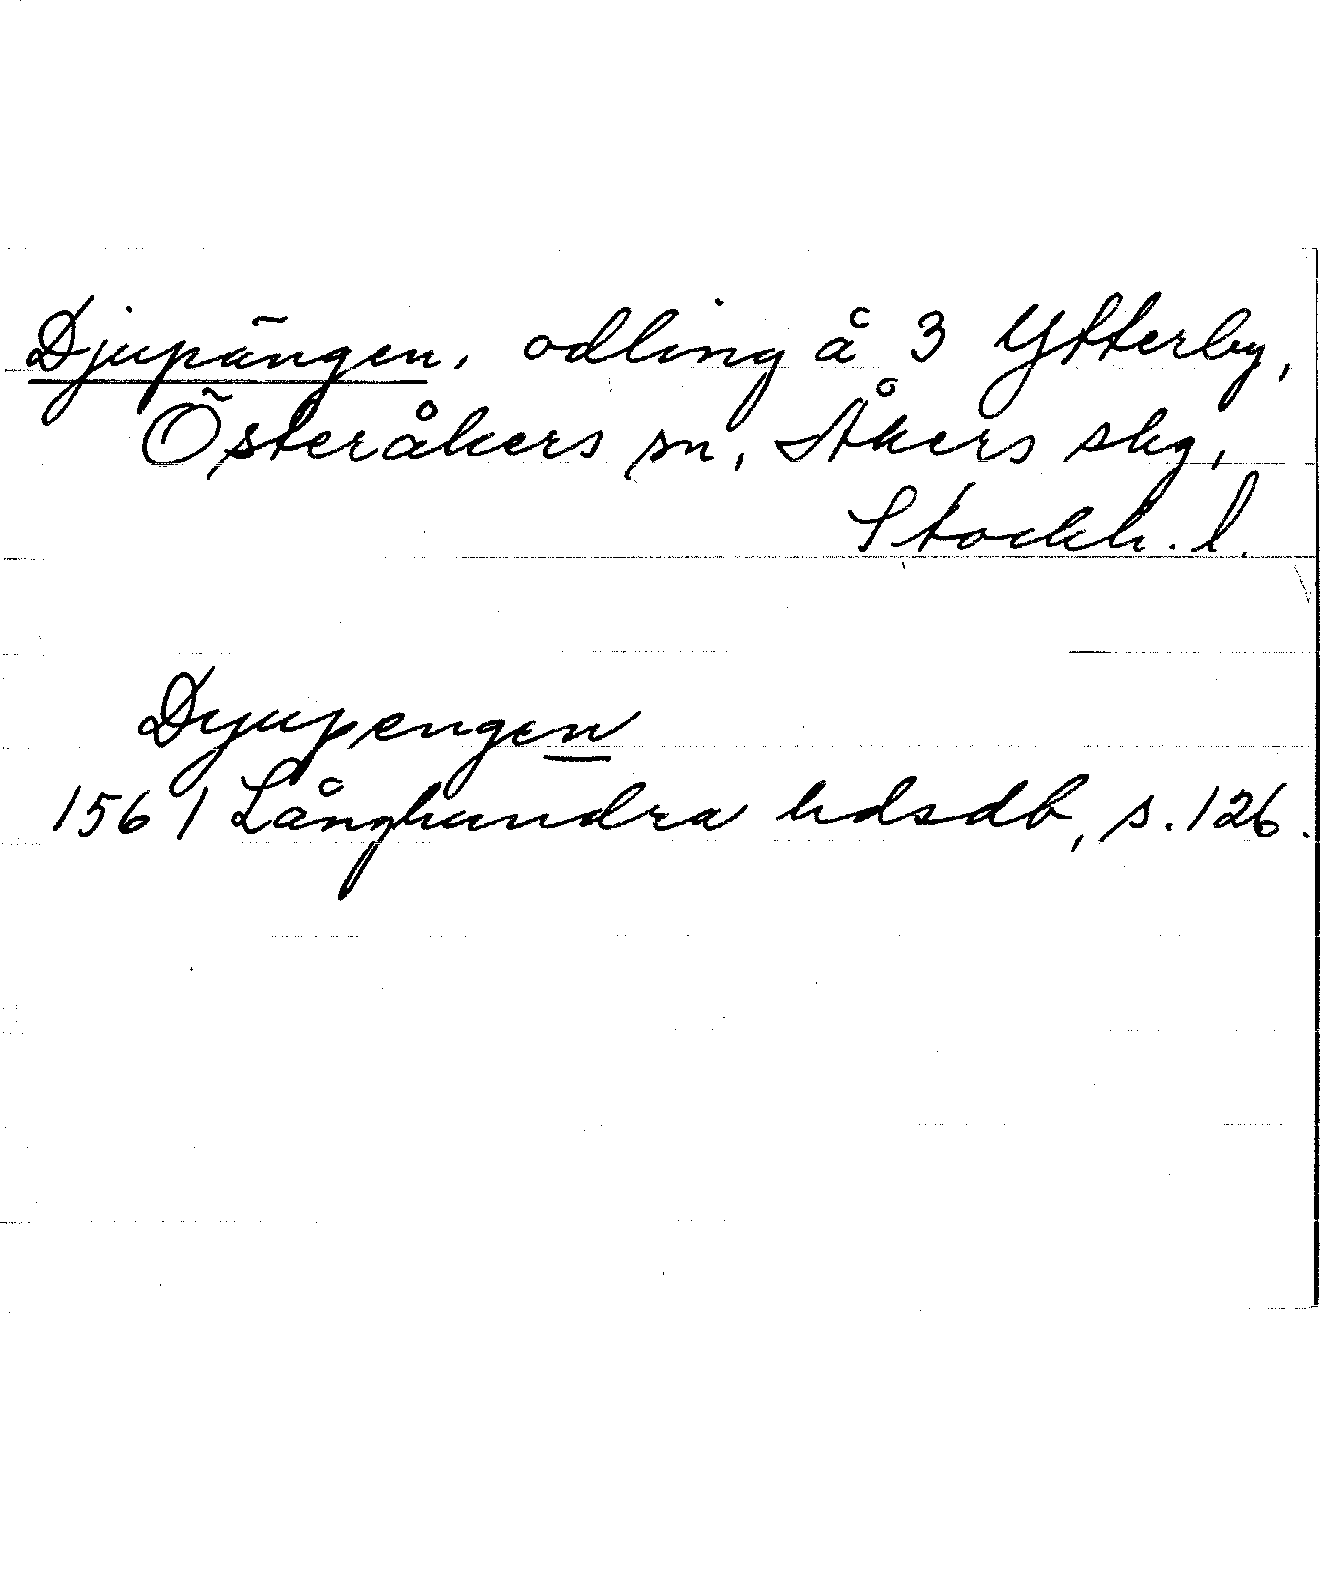 Djupängen, odling å 3 Ytterby,
Österåkers sn, Åkers skg,
Stockh. l.
Dyupengen
1561 Långhundra hdsdb, s. 126.